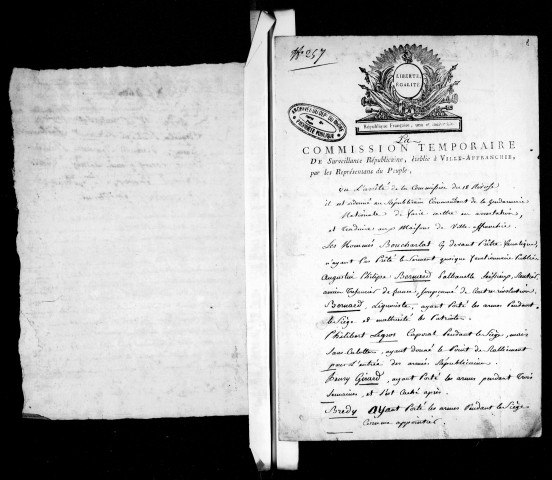 N° 257
LIBERTÉ
EGALITÉ
République Française, une et indivisible
La
COMMISSION TEMPORAIRE
DE Surveillance Républicaine, établie à VILLE-AFFRANCHIE,
par les Représentans du Peuple,
Vu l'arrêté de la Commission du 18 Nivose
il est ordonné au Républicain Commandant de la gendarmerie
Nationale de faire mettre en arrestation,
et Conduire aux Maisons de Ville-affranchie
Les Nommés Boucharlat cy devant Prêtre fanatique,
n'ayant pas Prêté le Serment quoique fonctionnaire Public
Augustin Philipe Bernard
ancien Trésorier de france, soupçonné de Contre révolution
Bernard, Liquoriste, ayant Porté les armes Pendant
le Siège et maltraité les Patriotes
Philibert Legros Caporal Pendant le Siège,
Sans Culotte, ayant donné le Point de Ralliment
pour l'entrée des armées Républicaine.
Henry Girard, ayant Porté les armes pendant Trois
Semaines, et s'est Caché après.
Bredy ayant Porté les armes Pendant le Siège
Comme appointé.